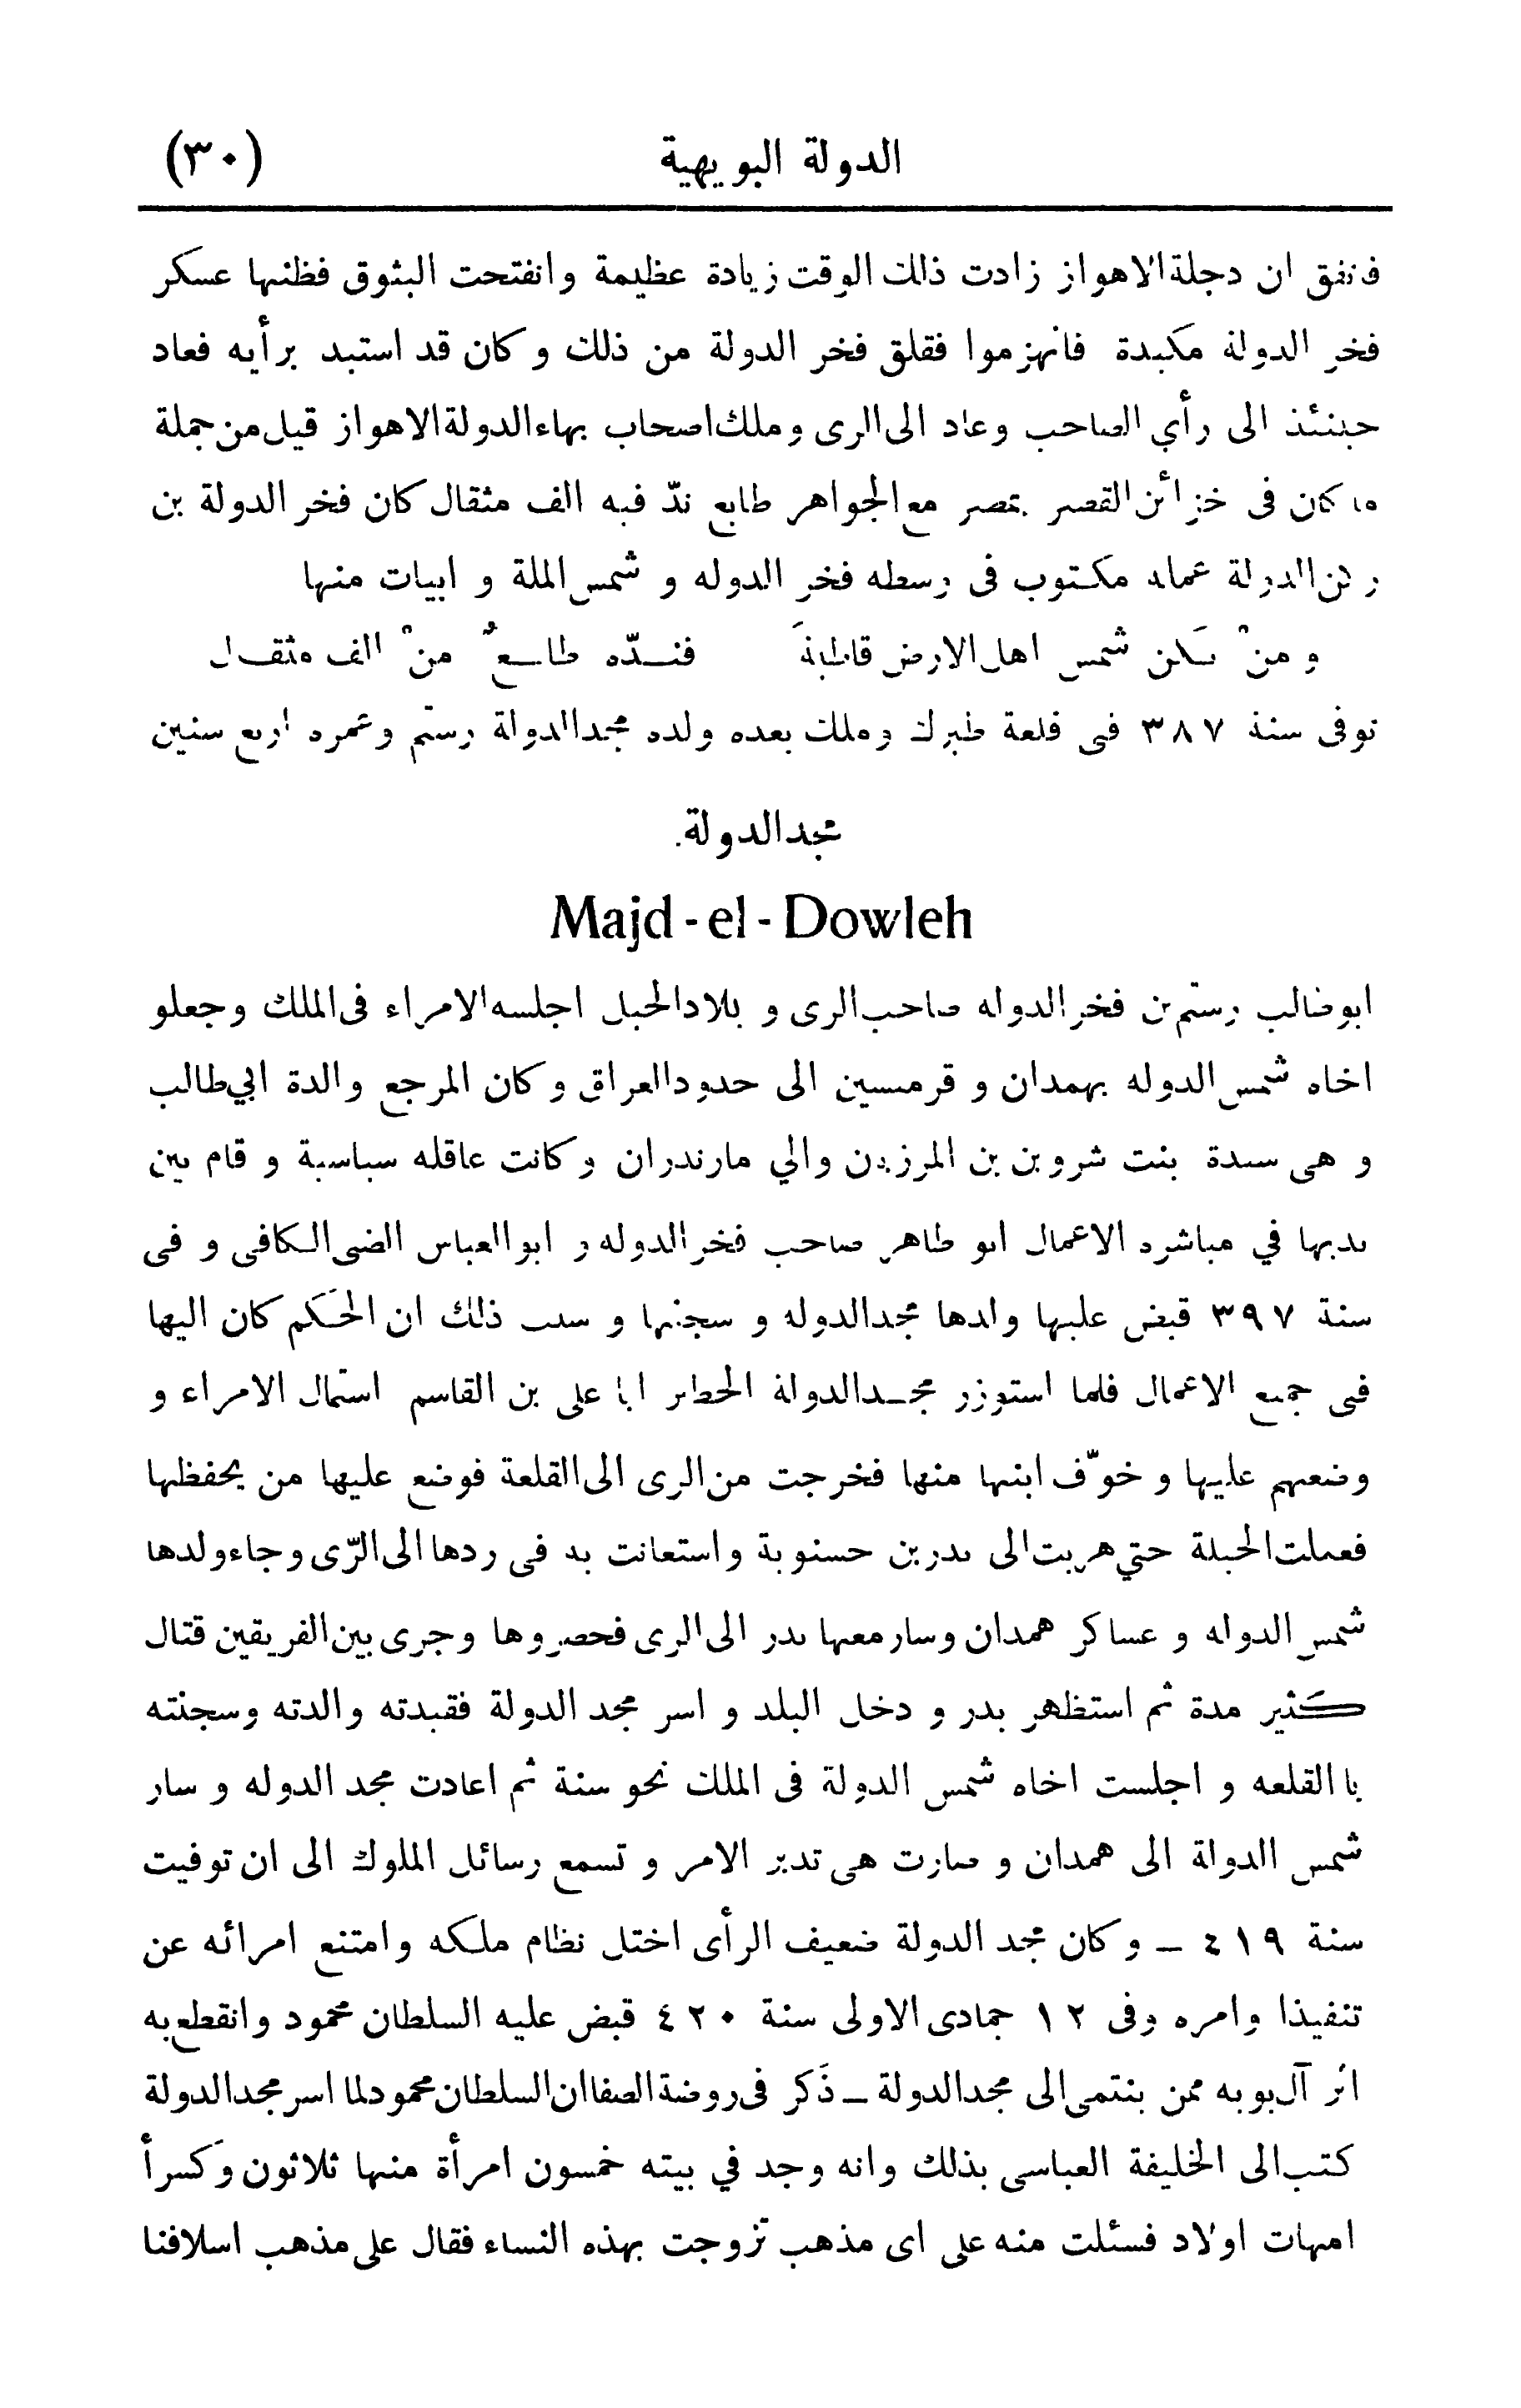 الدولة البويهية (٣٠)
فاتفق ان دجلة الاهواز زادت ذلك الوقت زيادة عظيمة وانفتحت البثوق فظنها عسكر
فخر الدولة مكيدة فانهزموا فقلق فخر الدولة من ذلك وكان قد استبد برأيه فعاد
حينئذ الى رأي الصاحب وعاد الى الرى وملك اصحاب بهاء الدولة الاهواز قيل من جملة
ما كان فى خزائن القصر بمصر مع الجواهر طابع ندّ فيه الف مثقال كان فخر الدولة بن
ركن الدولة عمله مكتوب فى وسطه فخر الدوله و شمس الملة و ابيات منها
و منْ يكن شمس اهل الارض قاطبةَ فندّه طابعٌ منْ الف مثقال
توفى سنة ٣٨٧ فى قلعة طبرك وملك بعده ولده مجد الدولة رستم وعمره اربع سنين
مجد الدولة.
Majd - el - Dowleh
ابوطالب رستم بن فخر الدوله صاحب الرى و بلاد الجبل اجلسه الامراء فى الملك وجعلو
اخاه شمس الدوله بهمدان و قرمسين الى حدود العراق وكان المرجع والدة ابي طالب
و هى سيدة بنت شروين بن المرزبان والي مازندران وكانت عاقله سياسية و قام بين
يديها في مباشره الاعمال ابو طاهر صاحب فخر الدوله و ابو العباس الضبى الكافى و فى
سنة ٣٩٧ قبض عليها ولدها مجد الدوله و سجنها و سبب ذلك ان الحكم كان اليها
فى جميع الاعمال فلما استوزر مجد الدولة الخطير ابا على بن القاسم استمال الامراء و
وضعهم عليها و خوّف ابنها منها فخرجت من الرى الى القلعة فوضع عليها من يحفظها
فعملت الحيلة حتي هربت الى بدر بن حسنوية واستعانت به فى ردها الى الرّى وجاء ولدها
شمس الدوله و عساكر همدان وسار معها بدر الى الرى فحصروها وجرى بين الفريقين قتال
كثير مدة ثم استظهر بدر و دخل البلد و اسر مجد الدولة فقيدته والدته وسجنته
با القلعه و اجلست اخاه شمس الدولة فى الملك نحو سنة ثم اعادت مجد الدوله و سار
شمس الدولة الى همدان و صارت هى تدبر الامر و تسمع رسائل الملوك الى ان توفيت
سنة ٤١٩ ــ وكان مجد الدولة ضعيف الرأى اختل نظام ملكه وامتنع امرائه عن
تنفيذا وامره وفى ١٢ جمادى الاولى سنة ٤٢٠ قبض عليه السلطان محمود وانقطع به
اثر آل بويه ممن ينتمى الى مجد الدولة ــ ذَكر فى روضة الصفا ان السلطان محمود لما اسر مجد الدولة
كتب الى الخليفة العباسى بذلك وانه وجد في بيته خمسون امرأة منها ثلاثون وكسراً
امهات اولاد فسئلت منه على اى مذهب تزوجت بهذه النساء فقال على مذهب اسلافنا